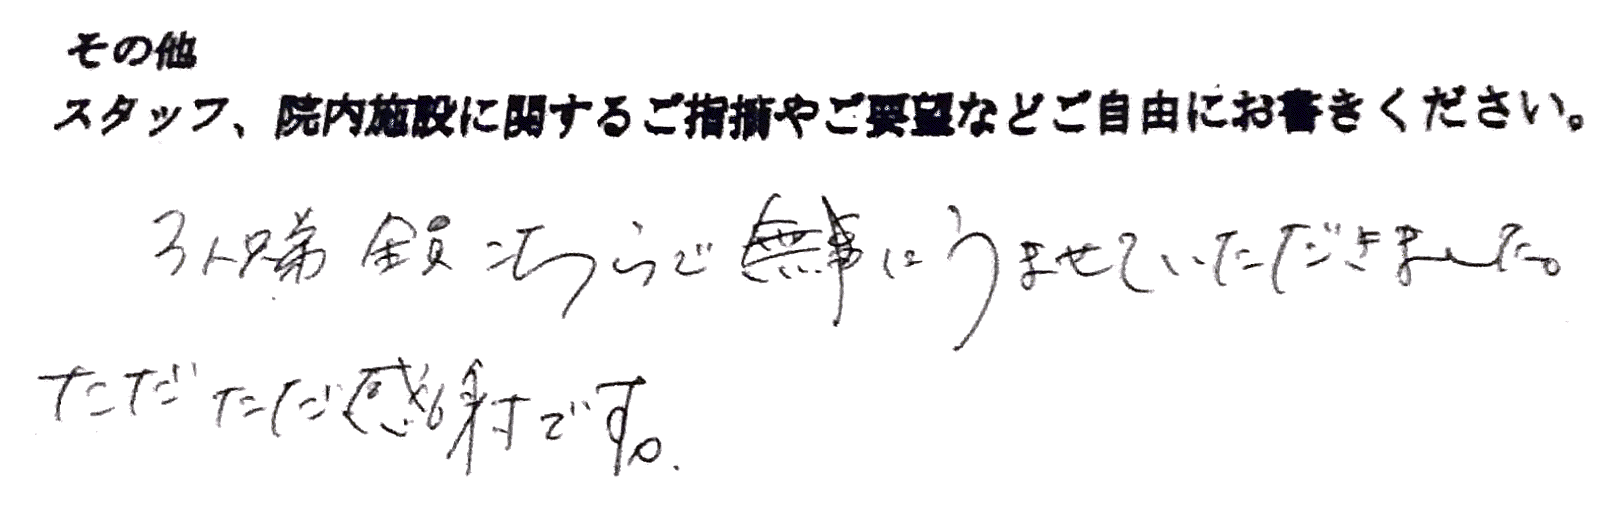 その他
スタッフ、院内施設に関するご指摘やご要望などご自由にお書きください。
3人兄弟 全員こちらで無事にうませていただきました。
ただただ感謝です。